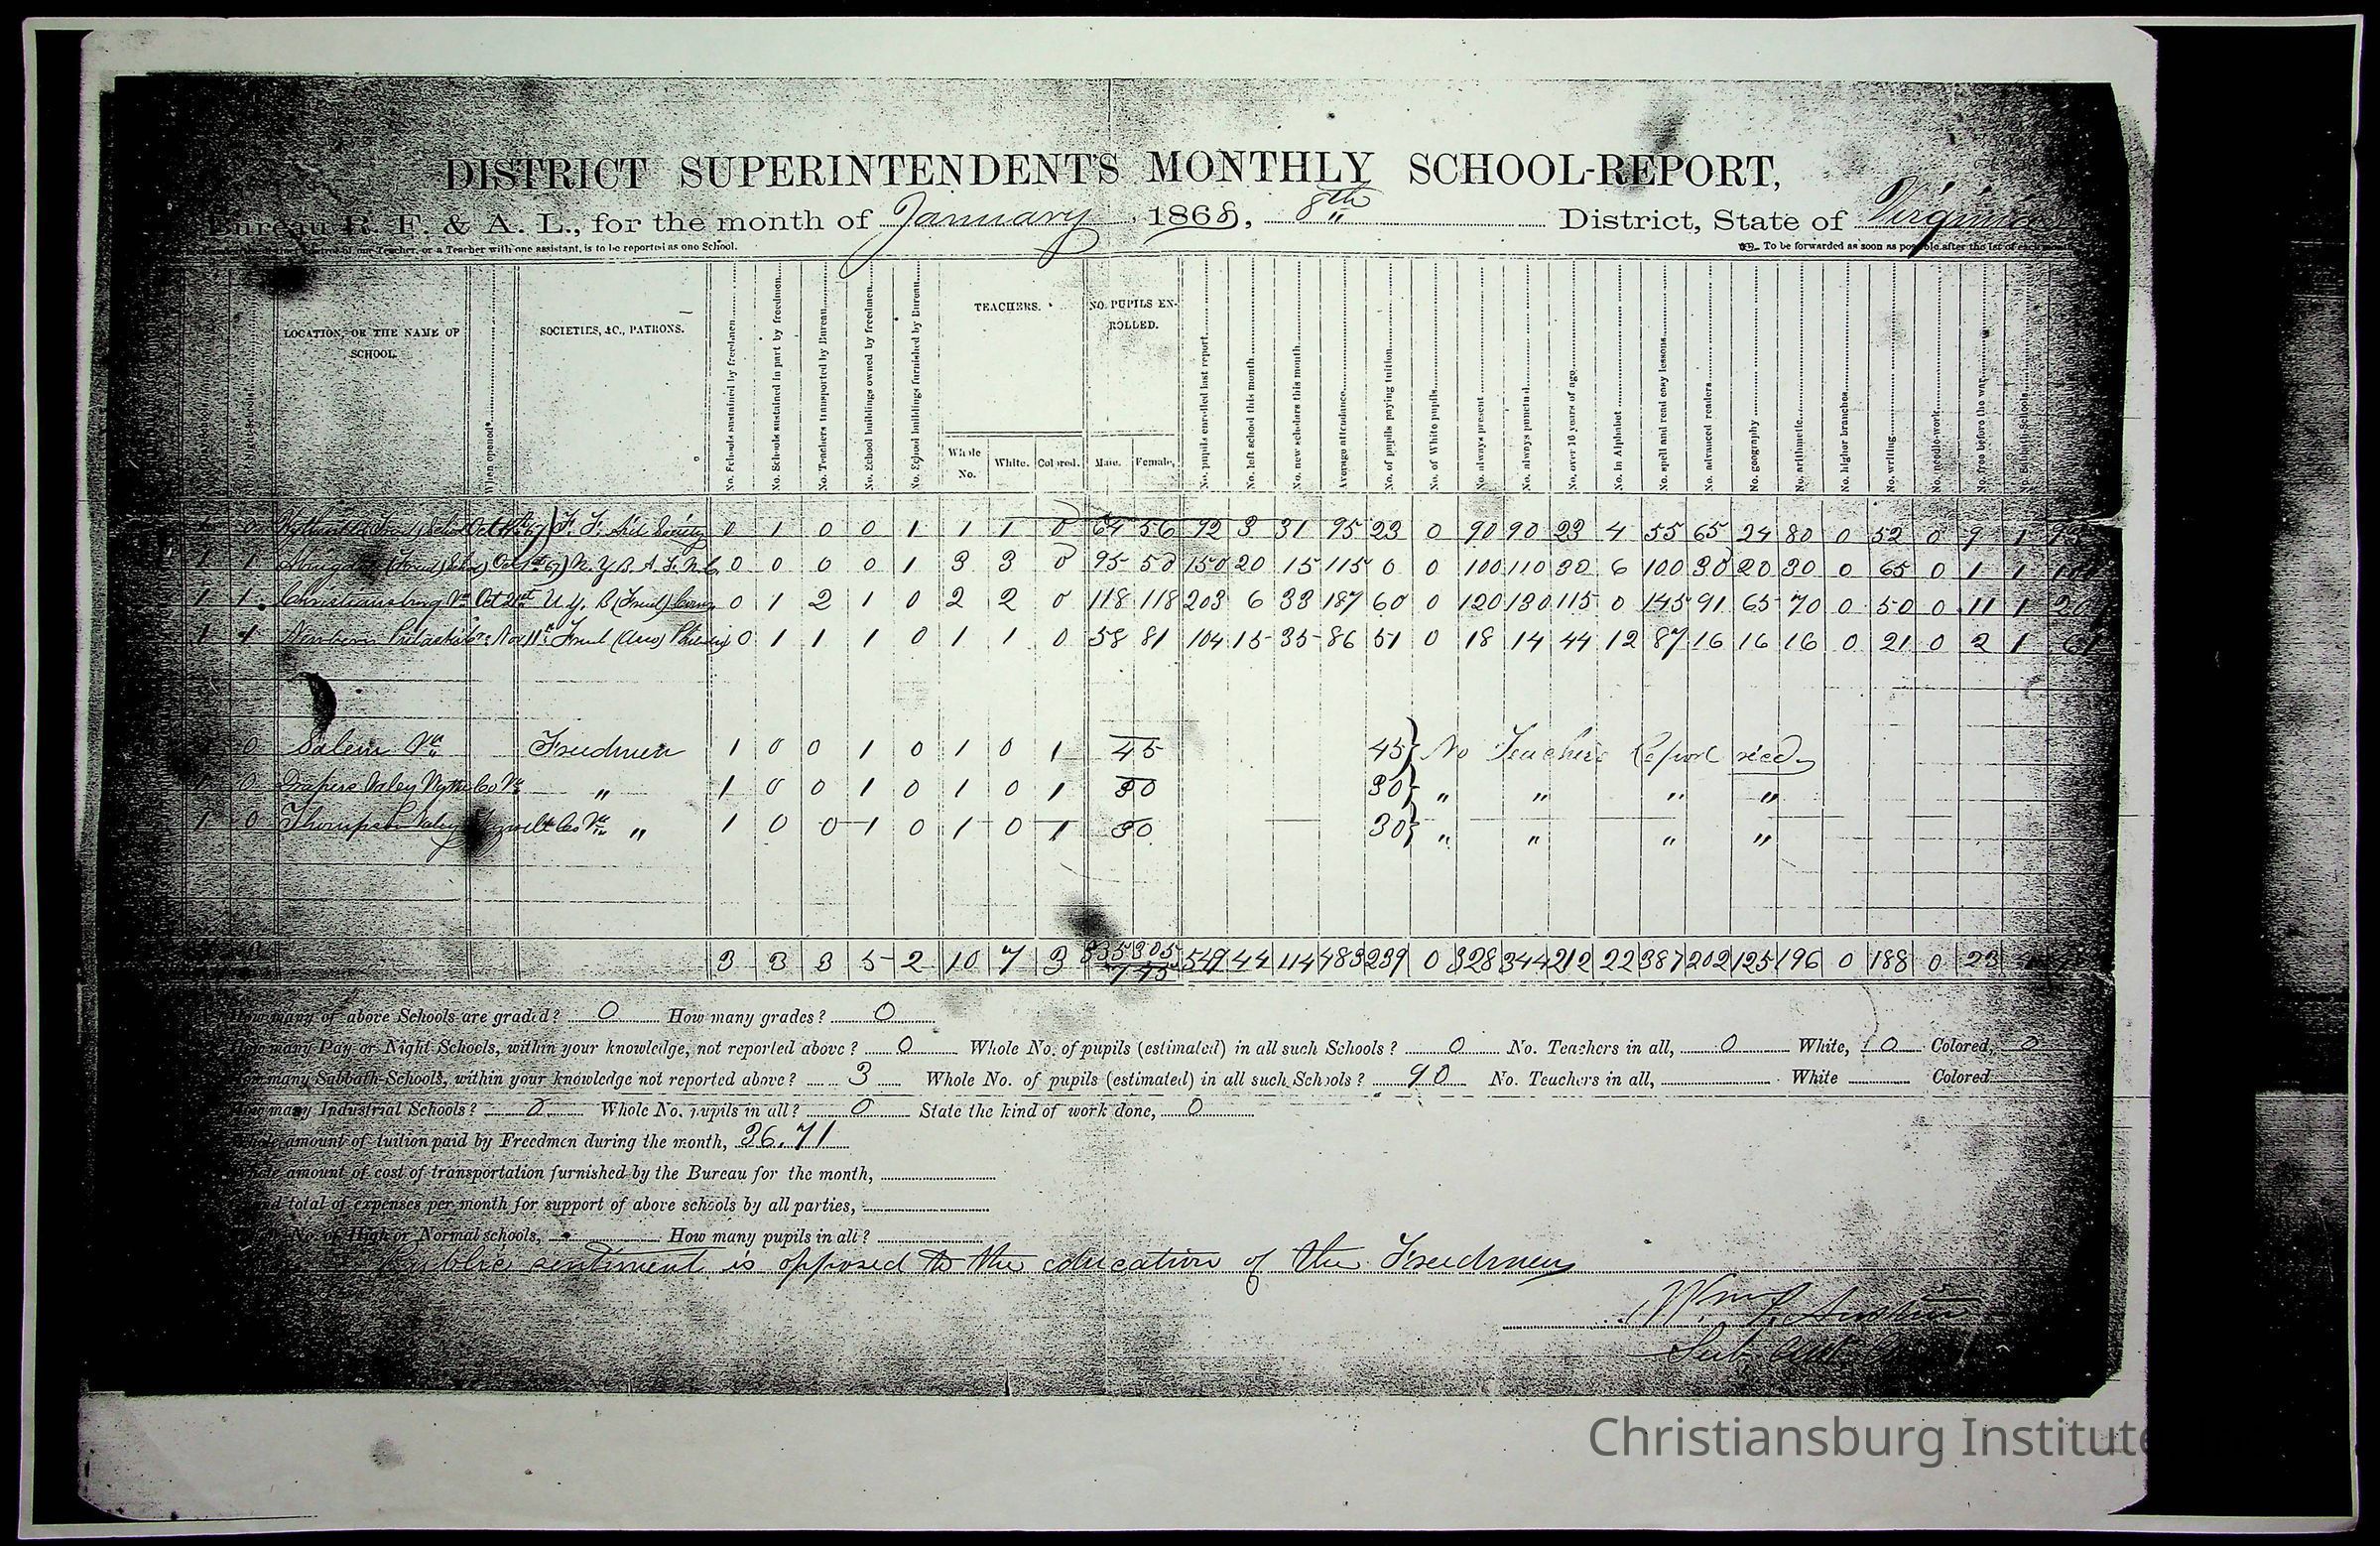 DISTRICT SUPERINTENDENT'S MONTHLY SCHOOL-REPORT,
Bureau R. F. & A. L., for the month of January, 1868, 8th District, State of Virginia
Teacher, or a Teacher with one assistant, is to be reported as one School. To be forwarded as soon as possible after the 1st of each month
LOCATION, OR THE NAME OF SCHOOL.
When opened
SOCIETIES, &C., PATRONS.
No. Schools sustained by freedmen
No. Schools sustained in part by freedmen
No. Teachers transported by Bureau
No. School buildings owned by freedmen
No. School buildings furnished by Bureau
TEACHERS.
Whole No. White. Colored.
NO. PUPILS ENROLLED.
Male. Female.
No. pupils enrolled last report
No. left school this month
No. new scholars this month
Average attendance
No. of pupils paying tuition
No. of White pupils
No. always present
No. always punctual
No. over 16 years of age
No. in Alphabet
No. spell and read easy lessons
No. advanced readers
No. geography
No. arithmetic
No. higher branches
No. writing
No. needle-work
No. free before the war
No. Sabbath-Schools
F. F. Aid Society 0 1 0 0 1 1 1 0 64 56 92 3 31 95 23 0 90 90 23 4 55 65 24 80 0 52 0 9 1
1 1 N. Y. B 0 0 0 0 1 3 3 0 95 50 150 20 15 115 0 0 100 110 30 6 100 30 20 30 0 65 0 1 1
1 1 Christiansburg Va Oct 21st 0 1 2 1 0 2 2 0 118 118 203 6 33 187 60 0 120 130 115 0 145 91 65 70 0 50 0 11 1
1 1 Newbern Pulaski 0 1 1 1 0 1 1 0 58 81 104 15 35 86 51 0 18 14 44 12 87 16 16 16 0 21 0 2 1 61
0 Salem Va Freedmen 1 0 0 1 0 1 0 1 45 45} No Teachers Report recd
1 0 Drapers Valey Wythe Co Va " 1 0 0 1 0 1 0 1 30 30} " " " "
1 0 Thompson Valey Co Va " 1 0 0 1 0 1 0 1 30 30} " " " "
3 3 3 5 2 10 7 3 335 305 549 44 114 483 239 0 328 344 212 22 387 202 125 196 0 188 0 23
How many of above Schools are graded? 0 How many grades? 0
How many Pay or Night Schools, within your knowledge, not reported above? 0 Whole No. of pupils (estimated) in all such Schools? 0 No. Teachers in all, 0 White, 0 Colored, 0
How many Sabbath-Schools, within your knowledge not reported above? 3 Whole No. of pupils (estimated) in all such Schools? 90 No. Teachers in all, White Colored
How many Industrial Schools? 0 Whole No. pupils in all? 0 State the kind of work done, 0
Whole amount of tuition paid by Freedmen during the month, 36.71
Whole amount of cost of transportation furnished by the Bureau for the month,
Grand total of expenses per month for support of above schools by all parties,
No. of High or Normal schools, How many pupils in all?
Public sentiment is opposed to the education of the Freedmen
Wm P. Austin
Sub Asst
Christiansburg Institute